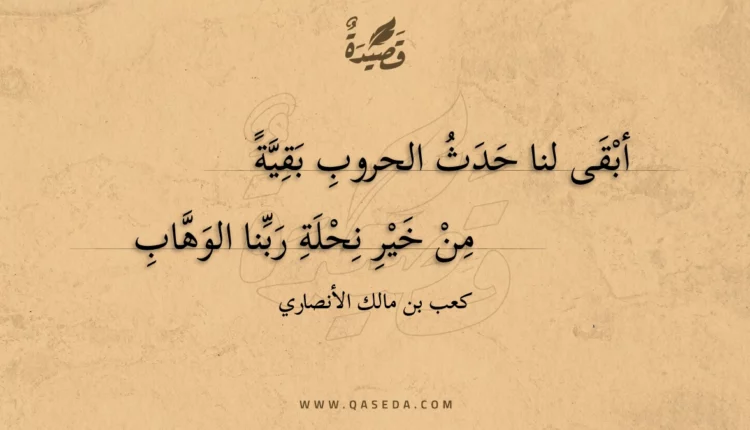 قَصِيدَةٌ
أبْقَى لنا حَدَثُ الحروبِ بَقِيَّةً
مِنْ خَيْرِ نِحْلَةِ رَبِّنا الوَهَّابِ
كعب بن مالك الأنصاري
WWW.QASEDA.COM